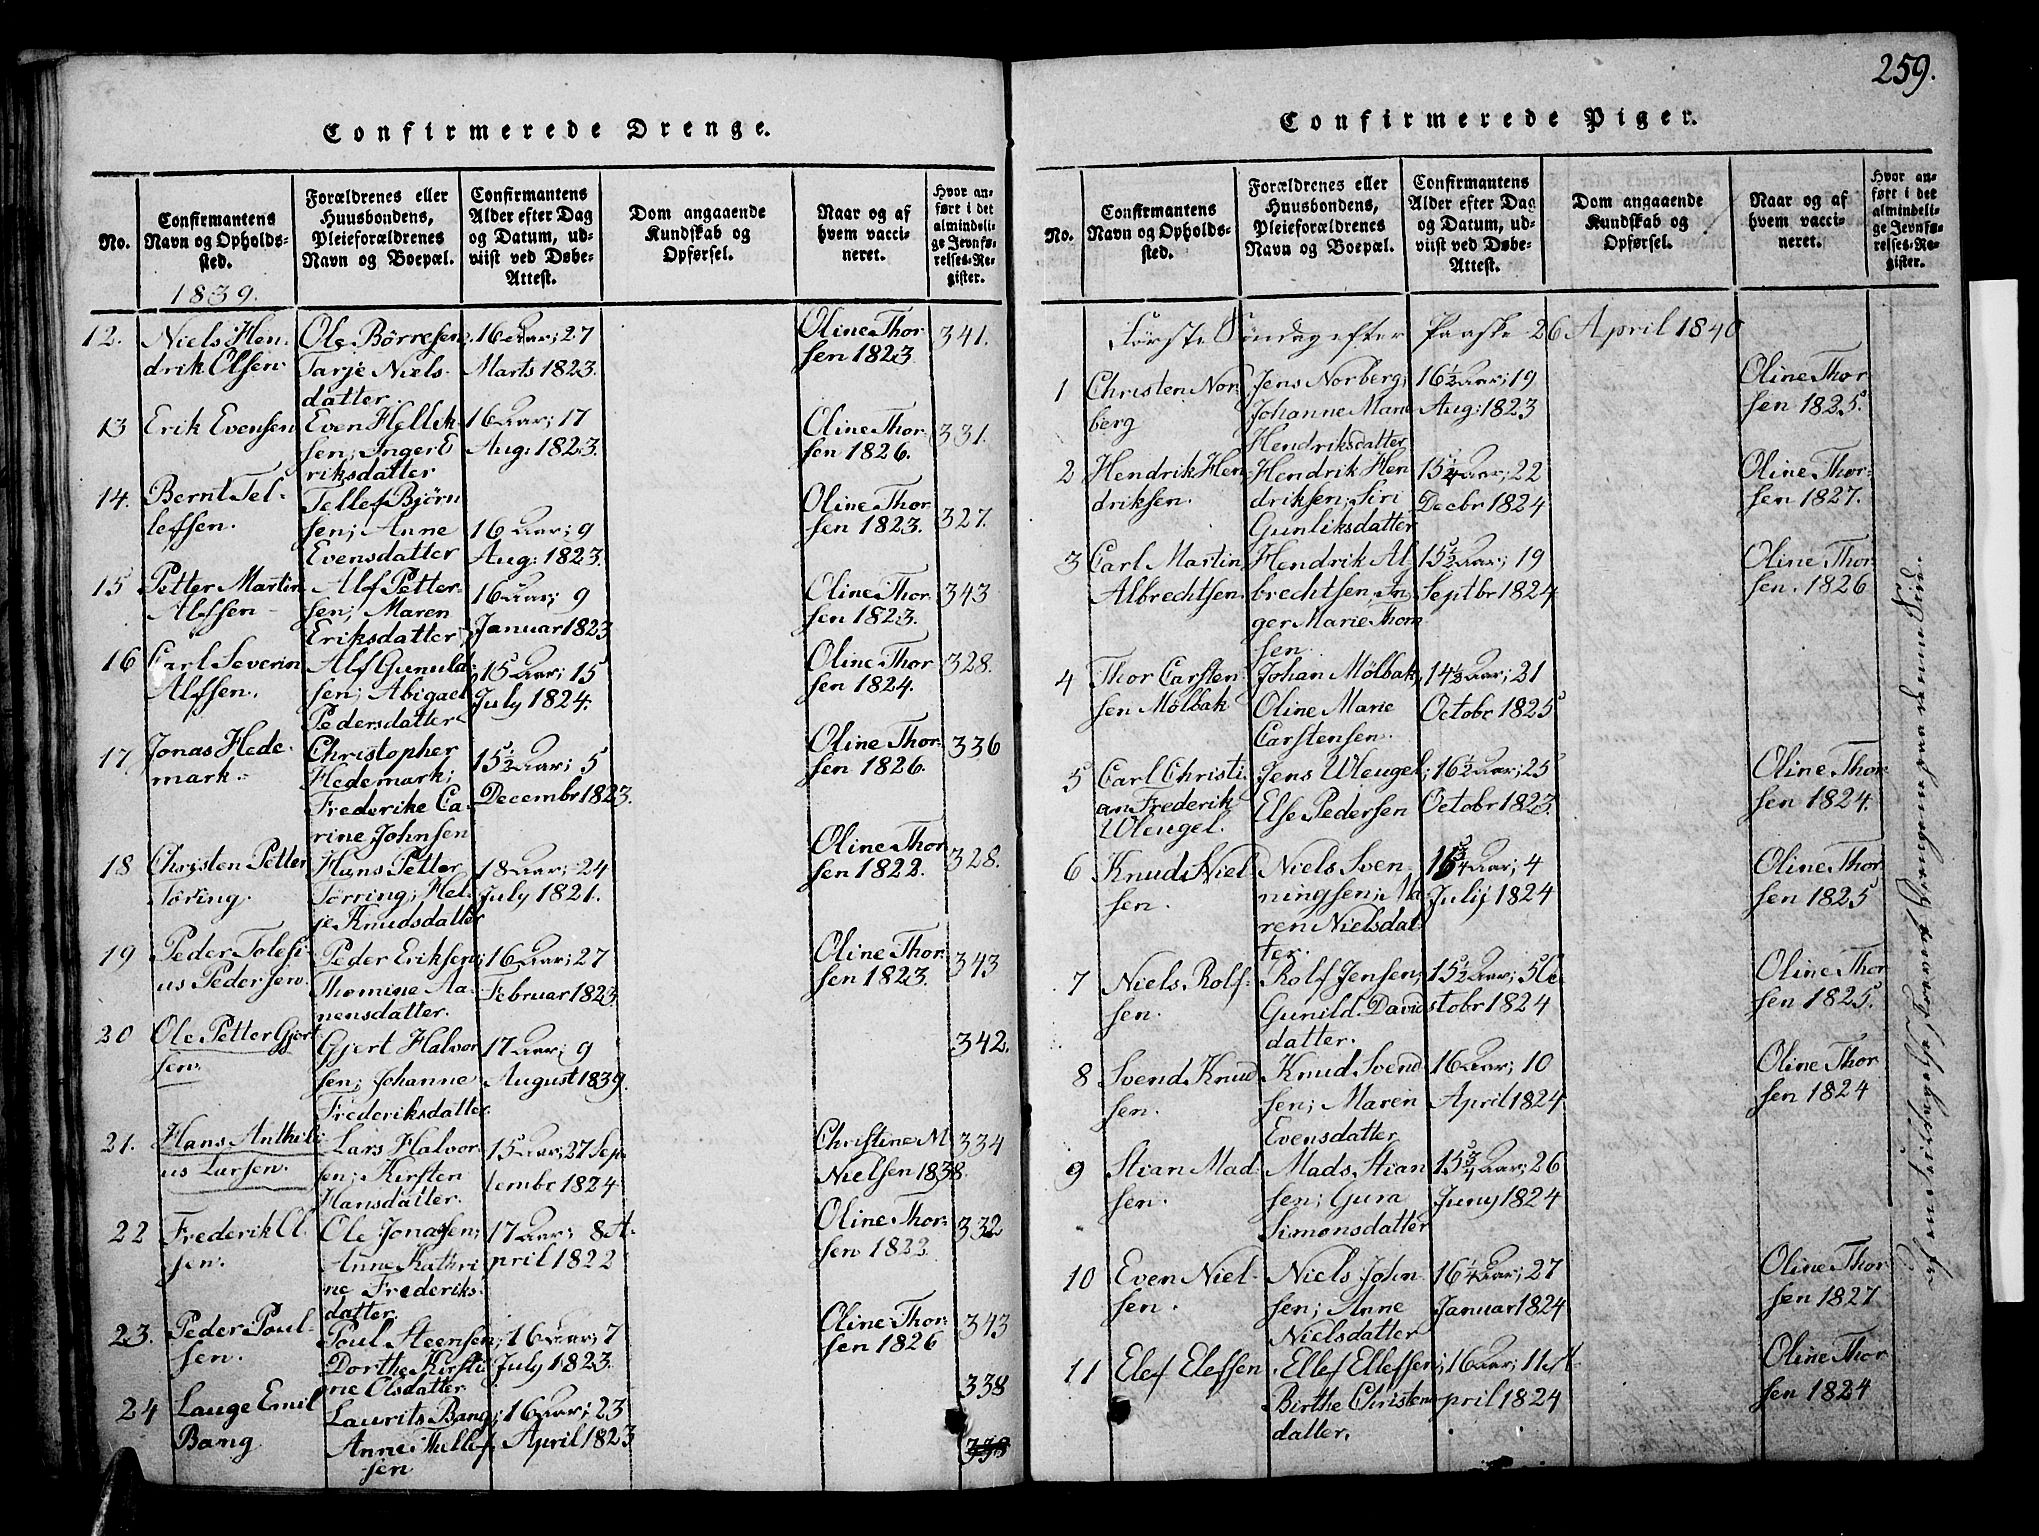 259.
Confirmerede Drenge.
No.
Confirmantens
Navn og Opholds-
sted.
1839.
Forældrenes eller
Huusbondens,
Pleieforældrenes
Navn og Boepæl.
Confirmantens
Alder efter Dag
og Datum, ud-
viist ved Døbe-
Attest.
Dom angaaende
Kundskab og
Opførsel.
Naar og af
hvem vacci-
neret.
Hvor an-
ført i det
almindeli-
ge Jevnfø-
relses-Re-
gister.
12.
Niels Hen-
drik Olsen
Ole Børresen;
Tarje Niels-
datter.
16 Aar; 27
Marts 1823.
Oline Thor
sen 1823.
341.
13
Erik Evensen
Even Hellik-
sen; Inger E
riksdatter
16 Aar; 17
Aug: 1823.
Oline Thor-
sen 1826.
331.
14.
Bernt Tel-
lefsen.
Tellef Bjørn
sen; Anne
Evensdatter
16 Aar; 9
Aug: 1823.
Oline Thor
sen 1823.
327.
15
Petter Martin
Alfsen
Alf Petter-
sen; Maren
Eriksdatter
16 Aar; 9
Januar 1823
Oline Thor-
sen 1823.
343
16
Carl Severin
Alfsen.
Alf Gunuld
sen; Abigael
Pedersdatter
15 Aar; 15
July 1824.
Oline Thor
sen 1824.
328.
17
Jonas Hede-
mark.
Christopher
Hedemark;
Frederike Ca-
rine Johnsen
15½ Aar; 5
Decembr 1823.
Oline Thor-
sen 1826.
336
18
Christen Petter
Tørring.
Hans Petter
Tørring; Hel-
je Knudsdatter
18 Aar; 24
July 1821.
Oline Thor
sen 1822.
328.
19
Peder Tolesi-
us Pedersen.
Peder Eriksen;
Thomine Aa-
nensdatter.
16 Aar; 27
Februar 1823
Oline Thor-
sen 1823.
343
20
Ole Petter Gjert
sen.
Gjert Halvor
sen; Johanne
Frederiksdatter.
17 Aar; 9
August 1839.
342.
21.
Hans Anthili
us Larsen.
Lars Halvor-
sen; Kirsten
Hansdatter.
15 Aar; 27 Sep-
tembr 1824
Christine M
Nielsen 1838.
334
22
Frederik Ol-
sen.
Ole Jonasen;
Anne Kathri
ne Frederiks-
datter.
17 Aar; 8 A-
pril 1822
Oline Thor-
sen 1822.
332
23.
Peder Poul-
sen.
Poul Steensen;
Dorthe Kirsti
ne Olsdatter
16 Aar; 7
July 1823.
Oline Thor-
sen 1826
343
24
Lauge Emil
Bang
Laurits Bang;
Anne Thellef
sen
16 Aar; 23
April 1823
338
338
Confirmerede Piger.
No.
Confirmantens
Navn og Opholds-
sted.
Forældrenes eller
Huusbondens,
Pleieforældrenes
Navn og Boepæl.
Confirmantens
Alder efter Dag
og Datum, ud-
viist ved Døbe-
Attest.
Dom angaaende
Kundskab og
Opførsel.
Naar og af
hvem vacci-
neret.
Hvor an-
ført i det
almindeli-
ge Jevnfø-
relses-Re-
gister.
Første Søndag efter Paaske 26 April 1840
1
Christen Nor-
berg
Jens Norberg;
Johanne Mari
Hendriksdatter
16½ Aar; 19
Aug: 1823
Oline Thor
sen 1825.
2
Hendrik Hen
driksen.
Hendrik Hen
driksen; Siri
Gunliksdatter
15¼ Aar; 22
Decbr 1824
Oline Thor-
sen 1827.
3
Carl Martin
Albrechtsen.
Hendrik Al
brechtsen, In
ger Marie Thom
sen
15½ Aar; 19
Septbr 1824
Oline Thor
sen. 1826
4
Thor Carsten
sen Mølbak
Johan Mølbak,
Oline Marie
Carstensen.
14½ Aar; 21
Octobr 1825
5
Carl Christi
an Frederik
Wleugel.
Jens Wleugel;
Else Pedersen
16½ Aar; 25
Octobr 1823.
Oline Thor
sen 1824.
6
Knud Niel
sen.
Niels Sven
ningsen; Ma
ren Nielsdat
ter.
15¾ Aar; 4
Julij 1824
Oline Thor
sen 1825
7
Niels Rolf-
sen.
Rolf Jensen;
Gunild Davids
datter.
15½ Aar; 5 Oc
tobr 1824
Oline Thor
sen 1825.
8
Svend Knud
sen.
Knud Svend
sen; Maren
Evensdatter
16 Aar; 10
April 1824
Oline Thor
sen 1824
9
Stian Mad-
sen.
Mads Stian
sen; Gura
Simonsdatter
15¾ Aar; 26
Juny 1824
10
Even Niel-
sen.
Niels John-
sen; Anne
Nielsdatter
16¼ Aar; 27
Januar 1824
Oline Thor
sen 1827
11
Elef Elefsen
Ellef Ellefsen;
Birthe Christens
datter.
16 Aar; 11 A-
pril 1824
Oline Thor
sen 1824